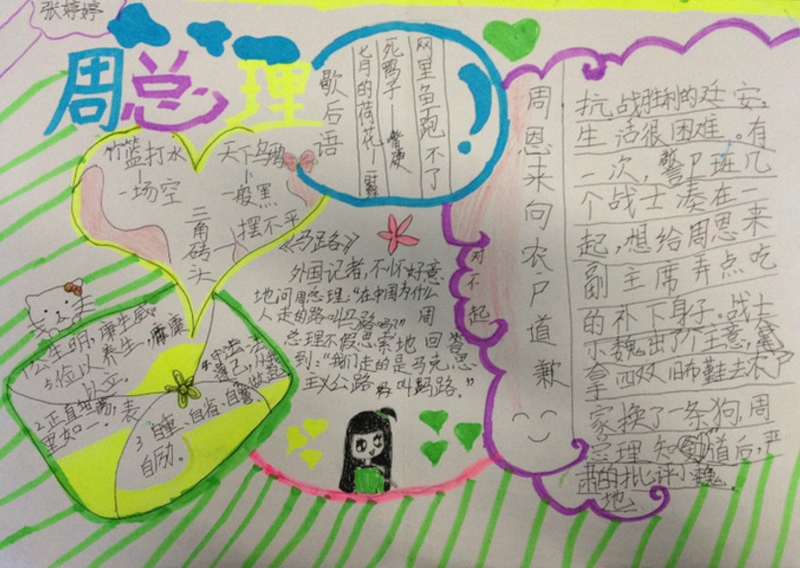 张婷婷
周总理
歇后语
网里鱼跑不了
死鸭子——嘴硬
七月的荷花—
竹篮打水
一场空
天下乌鸦
一般黑
三角砖头
—摆不平
《马路》
外国记者,不怀好意
地问周总理:“在中国为什么
人走的路叫马路吗?” 周
总理不假思索地回答
到:“我们走的是马克思
主义公路
叫马路.”
1公生明,廉生威。
2.正直
里如一。表
3自重、自省、自警
自励。
对不起
周恩来向农户道歉
抗战胜利的延安,
生活很困难。有
一次,警卫班几
个战士凑在一
起,想给周恩来
副主席弄点吃
的补下身子。战士
小魏出了个主意,拿
四双旧布鞋去农户
家换了一条狗,周
总理知道后,严
肃的批评小魏
地